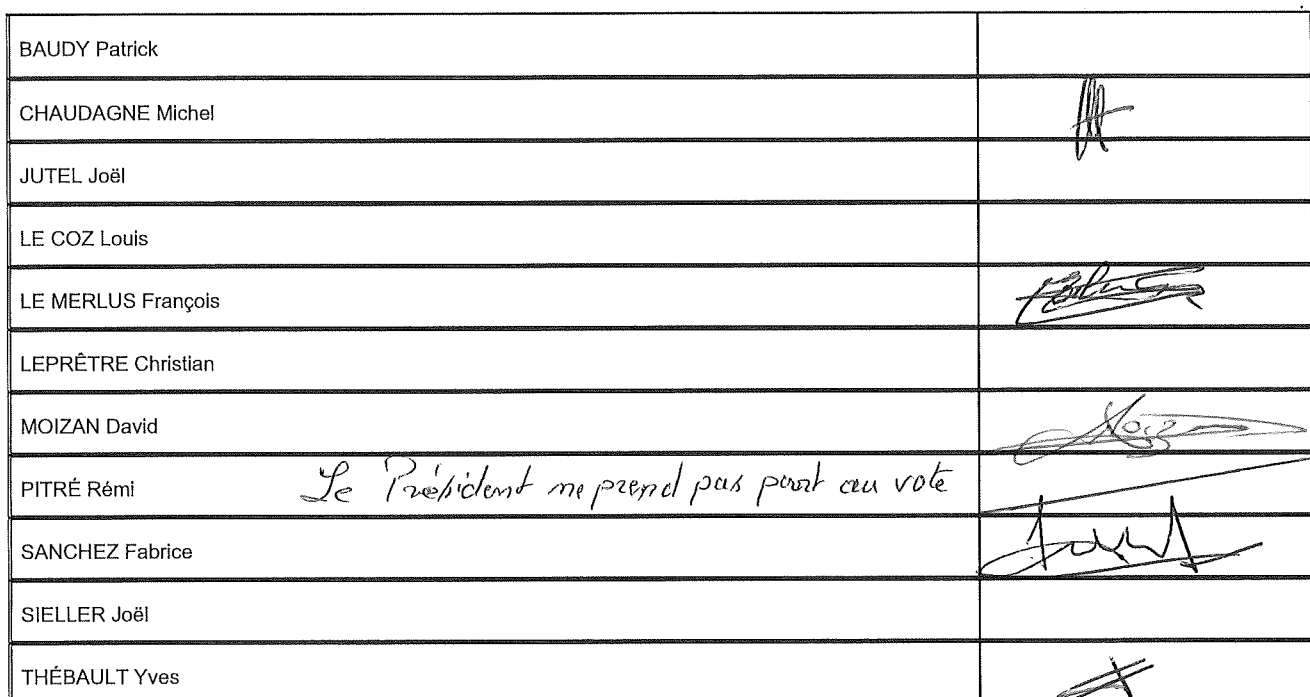 BAUDY Patrick
CHAUDAGNE Michel
JUTEL Joël
LE COZ Louis
LE MERLUS François
LEPRÊTRE Christian
MOIZAN David
PITRÉ Rémi Le Président ne prend pas part au vote
SANCHEZ Fabrice
SIELLER Joël
THÉBAULT Yves